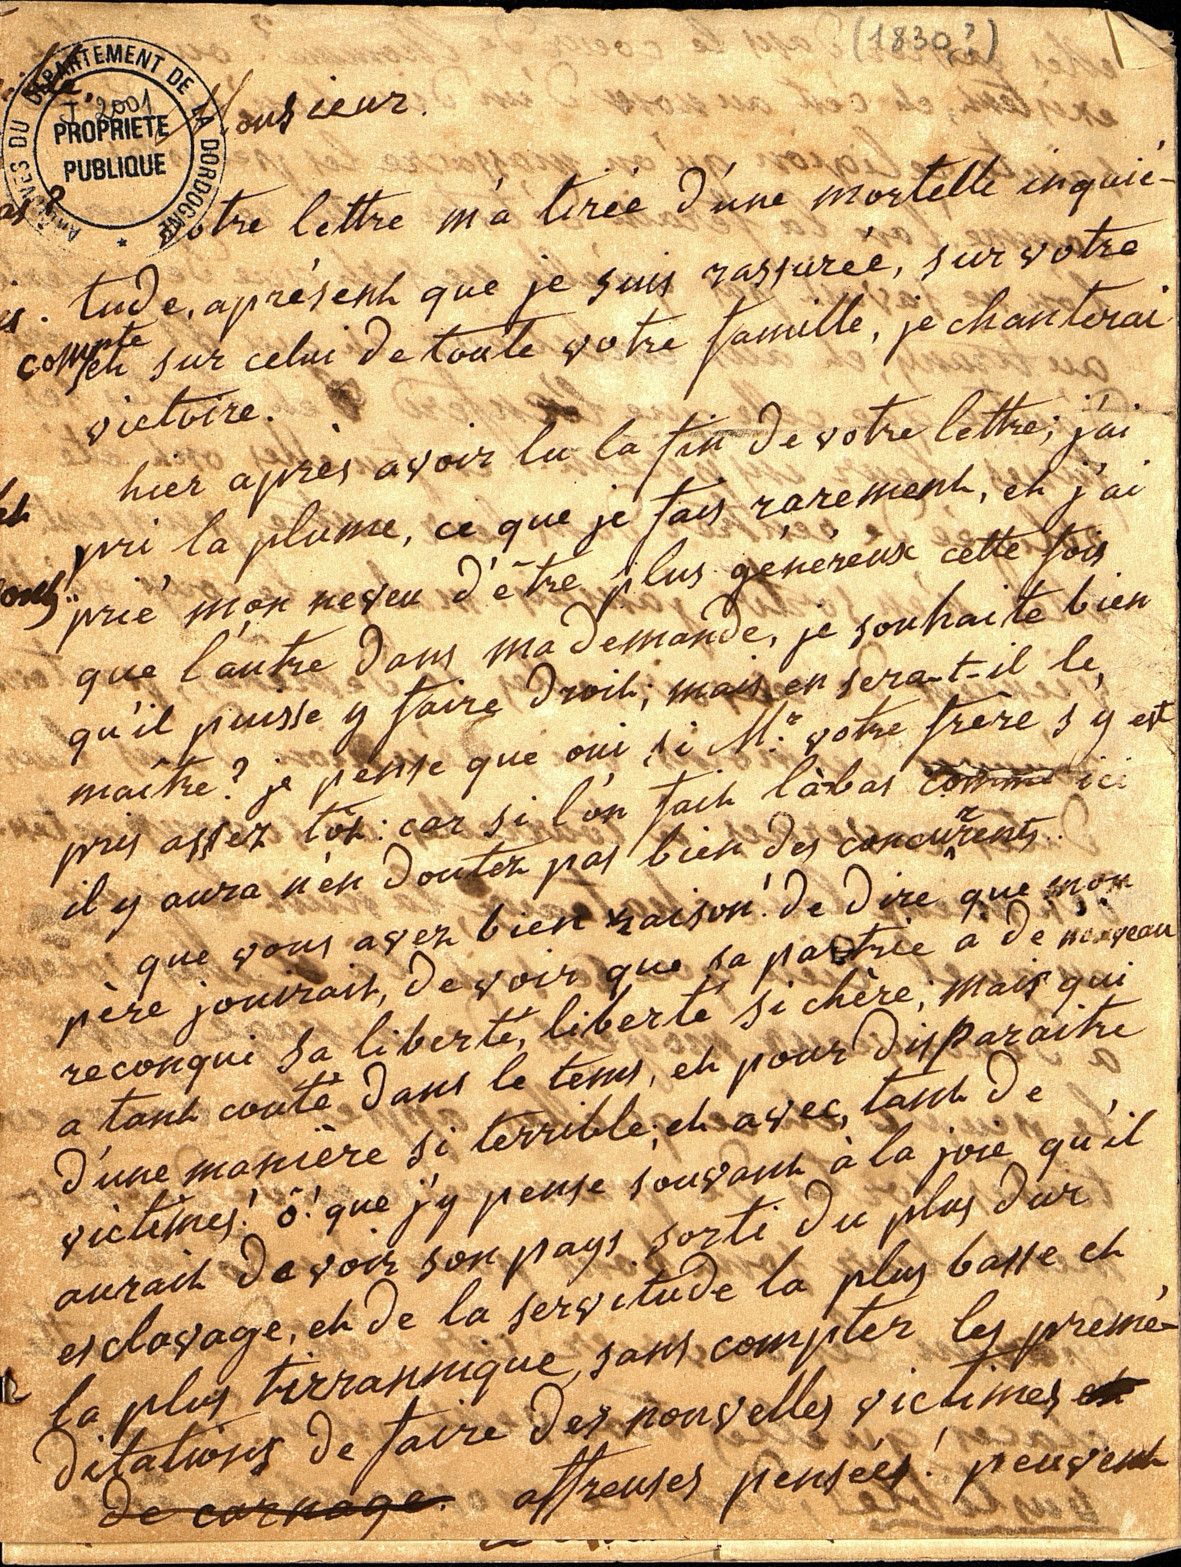 (1830?)
ARCHIVES DU DÉPARTEMENT DE LA DORDOGNE
J. 2001
PROPRIETE
PUBLIQUE
Monsieur.
votre lettre m'a tirée d'une mortelle inquié-
tude, aprésent que je suis rassurée, sur votre
compte
et sur celui de toute votre famille, je chanterai
victoire.
hier après avoir lu la fin de votre lettre; j'ai
pri la plume, ce que je fais rarement, et j'ai
prié mon neveu d'être plus généreux cette fois
que l'autre dans ma demande, je souhaite bien
qu'il puisse y faire droit; mais en sera-t-il le,
maître? je pense que oui, si Mr. votre frère s'y est
pris assez tôt: car si l'on fait làbas comme ici
il y aura n'en doutez pas bien des concurrents.
que vous avez bien raison! de dire que mon
père jouirait, de voir que sa patrie à de nouveau
reconqui sa liberté, liberté si chère; mais qui
a tant couté dans le tems, et pour disparaitre
d'une manière si terrible; et avec, tant de
victimes! ô! que j'y pense souvant à la joie qu'il
aurait de voir son pays sorti du plus dur
esclavage, et de la servitude la plus basse et
la plus tirrannique, sans compter les prémé-
ditations de faire des nouvelles victimes et
de carnage. affreuses pensées! peuvent